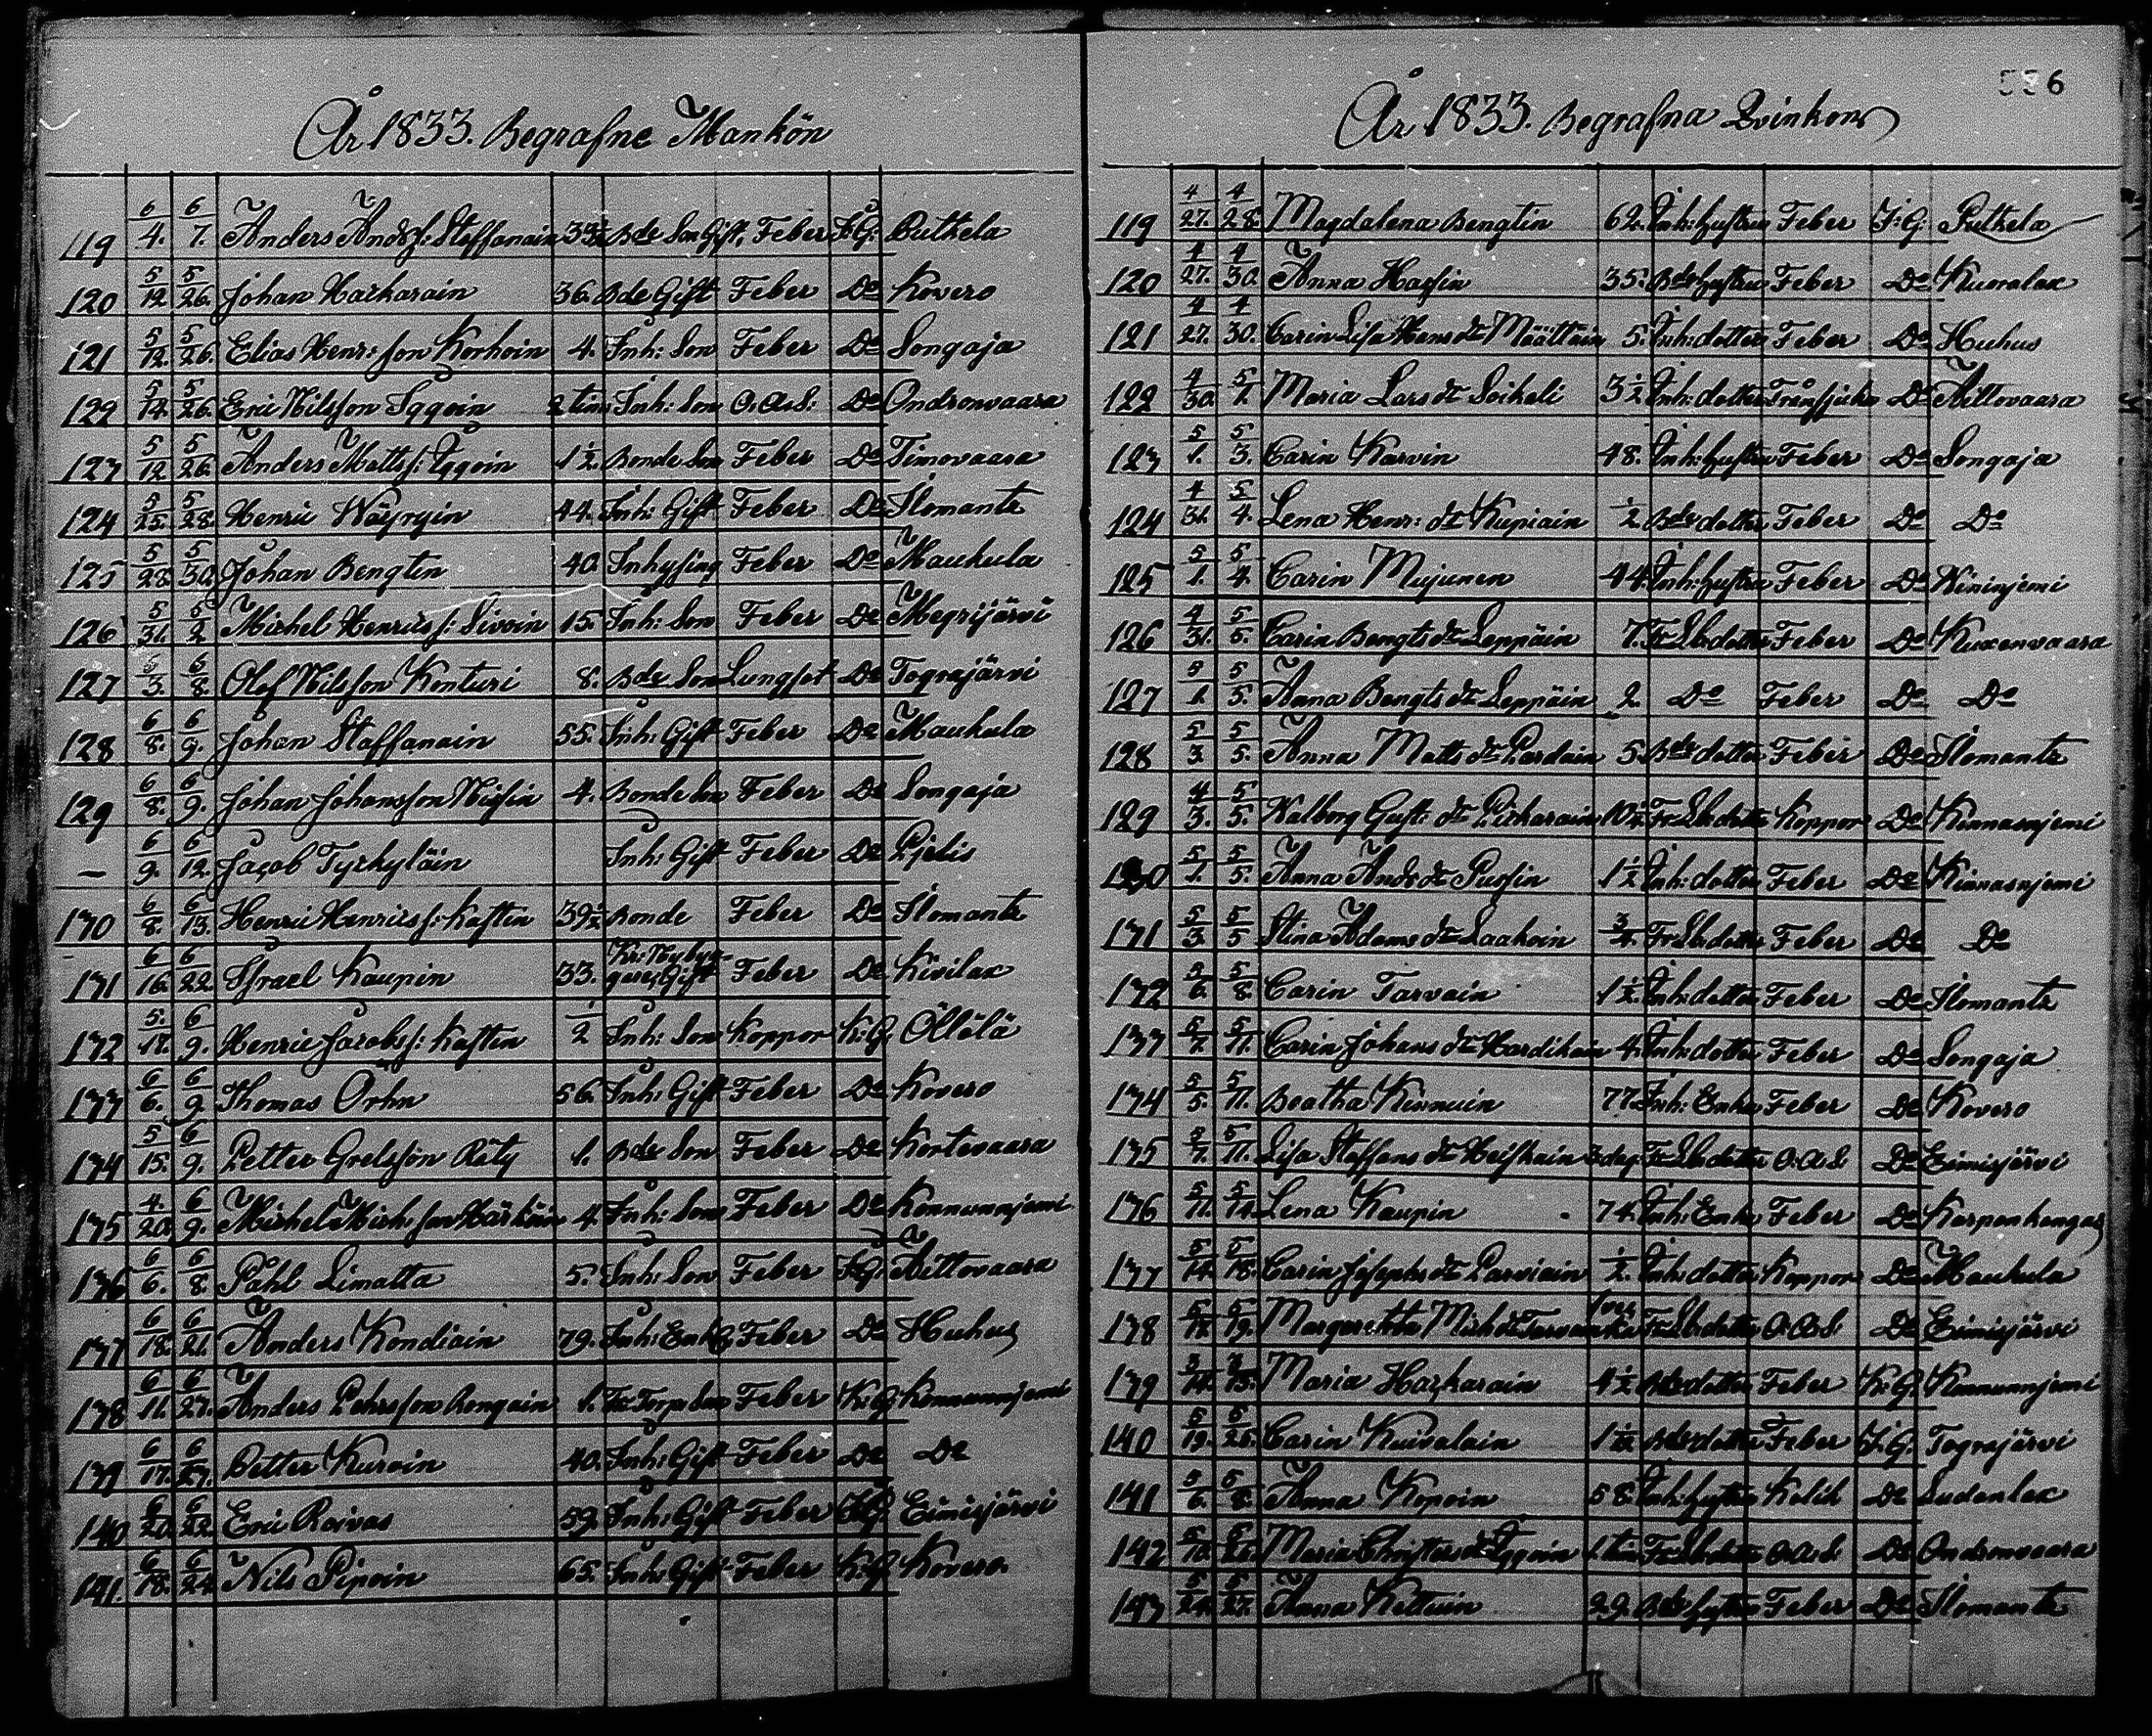 År 1833. Begrafne Mankön
119 6/4. 6/7. Anders Andss: Staffanain 33½ Bde Son Gift. Feber I.G: Putkela
120 5/12. 5/26. Johan Harkarain 36. Bde Gift Feber Do Kovero
121 5/12. 5/26. Elias Henr: son Korhoin 4. Inh: Son Feber Do Songaja
122 5/14. 5/26. Eric Nilsson Iggoin 2 tim Inh: Son O.A.S: Do Ondronvaara
123 5/12. 5/26. Anders Mattss: Iggoin 1½. Bonde Son Feber Do Timovaara
124 5/25. 5/28. Henric Wäyryin 44. Inh: Gift Feber Do Ilomants
125 5/28. 5/30. Johan Bengtin 40. Inhysing Feber Do Maukula
126 5/31. 6/2 Michel Henrics s: Sivoin 15. Inh: Son Feber Do Megrijärvi
127 6/3. 6/8. Olof Nilsson Konturi 8. Bde Son Lungsot Do Tograjärvi
128 6/8. 6/9. Johan Staffanain 55. Inh: Gift Feber Do Maukula
129 6/8. 6/9. Johan Johansson Nissin 4. Bonde Son Feber Do Songaja
— 6/9. 6/12. Jacob Tyrkyläin Inh: Gift Feber Do Pjelis
130 6/8. 6/13. Henric Henrics s: Kasten 39½ Bonde Feber Do Ilomants
131 6/16. 6/22. Israel Kaupin 33. Kr: Nybyggares Gift Feber Do Kivilax
132 5/17. 6/9. Henric Jacobs s: Kasten ½ Inh: Son Koppor K: G: Öllölä
133 6/6. 6/9. Thomas Orhn 56. Inh: Gift Feber Do Kovero
134 5/15. 6/9. Petter Grelsson Räty 1. Bde Son Feber Do Kortevaara
135 4/20. 6/9. Michel Mich: son Härköin 4. Inh: Son Feber Do Konnunnjemi
136 6/6. 6/8. Påhl Limatta 5. Inh: Son Feber I.G: Aittovaara
137 6/18. 6/21. Anders Kondiain 79. Inh: Enkl Feber Do Huhus
138 6/11. 6/27. Anders Pehrsson Rongain 1. Fr Torp: Son Feber K: G: Konnunnjemi
139 6/17. 6/27. Petter Kuroin 40. Inh: Gift Feber Do Do
140 6/20. 6/22. Eric Roivas 59. Inh: Gift Feber I.G: Eimisjärvi
141. 6/18. 6/24. Nils Pipoin 65. Inh: Gift Feber K.G: Kovero
556
År 1833. Begrafna Qvinkön
119 4/27. 4/28. Magdalena Bengtin 62. Inh: hustru Feber I: G: Putkela
120 4/27. 4/30. Anna Hassin 35. Bde hustru Feber Do Kuoralax
121 4/27. 4/30. Carin Lisa Hans dr Määttäin 5. Inh: dotter Feber Do Huhus
122 4/30. 5/1. Maria Lars dr Soikeli 3½ Inh: dotter Trånsjuka Do Aittovaara
123 5/1. 5/3. Carin Karvin 48. Inh: hustru Feber Do Songaja
124 4/31. 5/4. Lena Henr: dr Kupiain ½ Bde dotter Feber Do Do
125 5/1. 5/4. Carin Mujunen 44. Inh: hustru Feber Do Nininjemi
126 4/31. 5/5. Carin Bengts dr Leppäin 7. Fr Sb dotter Feber Do Kuxenvaara
127 5/1. 5/5. Anna Bengts dr Leppäin 2. Do Feber Do Do
128 5/3. 5/5. Anna Matts dr Pardain 5. Bde dotter Feber Do Ilomants
129 4/3. 5/5. Walborg Gust: dr Pitkarain 10½ Fr Sb dotter Koppor Do Kinnasnjemi
130 5/1. 5/5. Anna Ands dr Pussin 1½ Inh: dotter Feber Do Kinnasnjemi
131 5/3. 5/5 Stina Adams dr Laakoin ¾. Fr Sb dotter Feber Do Do
132 5/6. 5/8 Carin Tarvain 1½. Inh: dotter Feber Do Ilomants
133 5/7. 5/11. Carin Johans dr Hardikain 4. Inh: dotter Feber Do Songaja
134 5/5. 5/11. Beatha Kinnuin 77. Inh: Enka Feber Do Kovero
135 5/7. 5/11. Lisa Staffans dr Heiskain 3 dag Fr Sb dotter O.A.S. Do Eimisjärvi
136 5/11. 5/14. Lena Kaupin 74. Inh: Enka Feber Do Korpenkangas
137 5/14. 5/18. Carin Josephs dr Parviain ½. Inh: dotter Koppor Do Maukula
138 5/17. 5/19. Margaretha Mich: dr Tarvain 1 vecka Fr Sb dotter O.A.S. Do Eimisjärvi
139 3/14. 3/15. Maria Harkarain 4½ Bde dotter Feber K: G: Konnunnjemi
140 5/19. 5/25. Carin Kuivalain 1½ Bde dotter Feber I: G. Tograjärvi
141 5/6. 5/8. Anna Kopoin 58. Inh: hustru Kolik Do Sudenlax
142 5/18. 5/21. Maria Christers dr Iggoin 1. tim Fr Sb dotter O.A.S. Do Ondronvaara
143 5/24. 5/27. Anna Kettuin 29. Bde hustru Feber Do Ilomants